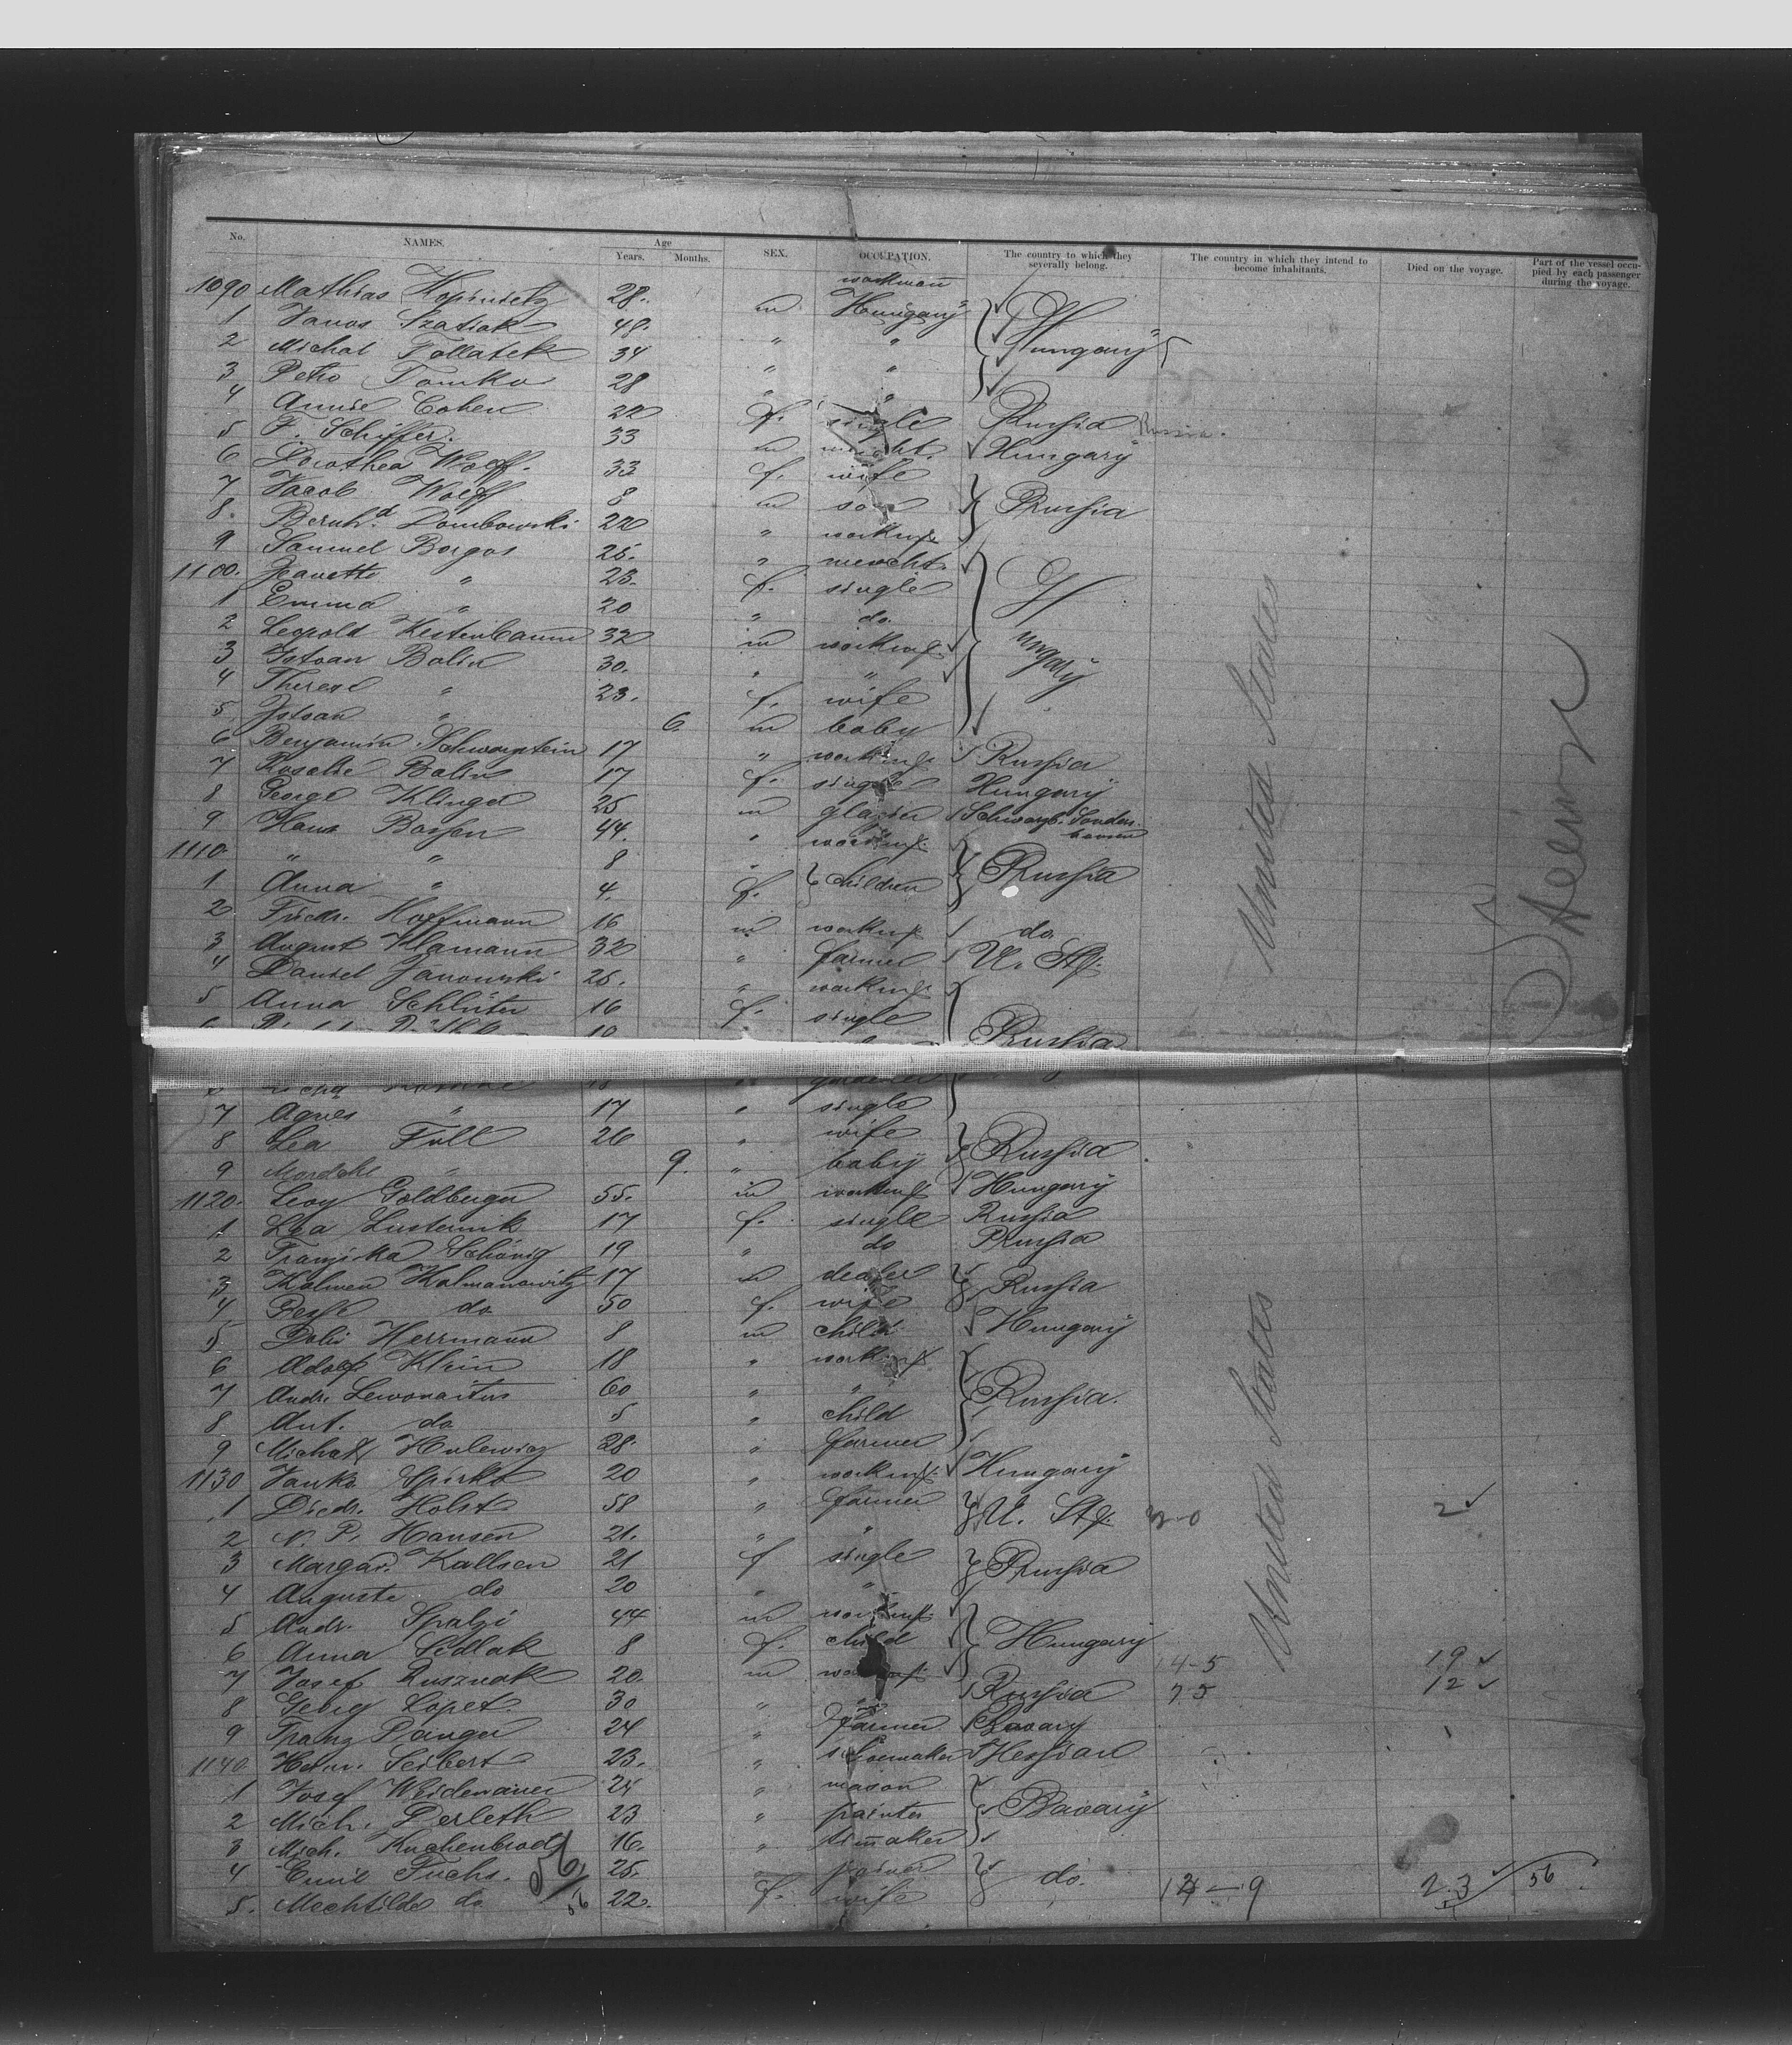 No. NAMES. Age Years. Months. SEX. OCCUPATION. The country to which they severally belong. The country in which they intend to become inhabitants. Died on the voyage. Part of the vessel occupied by each passenger during the voyage.
workman
1090 Mathias 28. m Hungary
1 Janos Szatiak 48. " "
2 Michal Follatek 34 " " Hungary
3 Petro Tomko 28 " "
4 Annie Cohen 22 f. single Russia Russia.
5 F. Schiffer. 33 m mercht. Hungary
6 Dorothea Wolff. 33 f. wife
7 Jacob Wolff 8 m son Prussia
8. Bernhd. Dombowski 22 " workmn
9 Samuel Borgos 25. " mercht.
1100. Jeanette " 23. f. single
1 Emma " 20 " do.
2 Leopold Kestenbaum 32 m workmn Hungary
3 Istvan Balin 30. " "
4 Therese " 23. f. wife
5 Istvan " 6. m baby
6 Benjamin Schwarzstein 17 " workmn. Russia
7 Rosalie Balin 17 f. single Hungary
8 George Klinger 25 m glazier Schwarzb. Sondershausen
9 Hans Bassen 44. " workmn.
1110. " " 8 " children Prussia
1 Anna " 4. f.
2 Friedr. Hoffmann 16 m workmn do.
3 August Klamann 32 " farmer U. Sts.
4 Daniel Janowski 25. " workmn.
5 Anna Schlüter 16 f. single
Prussia
7 Agnes " 17 " single
8 Lea Full 26 " wife Russia
9 " 9. " baby
1120. Levy Goldberger 55. m workmn Hungary
1 Lea Lusternik 17 f. single Russia
2 Franziska Schönig 19 " do Prussia
3 Kalmen Kalmanowitz 17 m dealer Russia
4 Pesse do. 50 f. wife
5 Herrmann 8 m child Hungary
6 Adolf Klein 18 " workmn
7 Andr. Lewonaitus 60 " " Russia.
8 Ant. do. 5 " child
9 Michal Hulewicz 28. " farmer
1130 Janko Spirko 20 " workmn. Hungary
1 Diedr. Holst 58 " farmer U. Sts. 2
2 N. P. Hansen 21. " "
3 Margar. Kallsen 21 f single Prussia
4 Auguste do 20 " "
5 Andr. Spalzi 44 m workmn.
6 Anna Sedlak 8 f. child Hungary
7 Josef Rusznak 20. m 14-5 19
8 Georg Lopet. 30 " " Russia 7 5 12
9 Franz Ranger 24 " farmer Bavary
1140. Heinr. Seibert 23. " shoemaker Hessian
1 Josef Weidenauer 24 " mason
2 Mich. Derleth 23 " painter Bavary
3 Mich. Kuchenbrod 16. " tinmaker
4 Emil Fuchs. 25. " do.
5. Mechtilde do. 56 22. f. wife 9 23 56
United States
United States